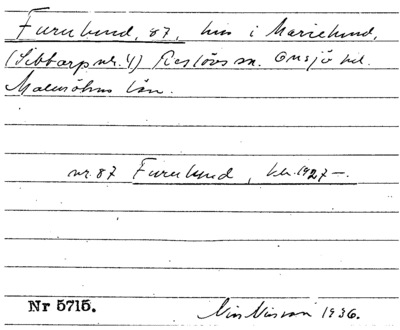 Furulund, 87, hus i Marielund,
(Sibbarp nr. 4) Reslövs sn. Onsjö hd.
Malmöhus län.
nr. 87 Furulund, kbr. 1927 –.
Nr 5715.
Nils Nilsson 1936.